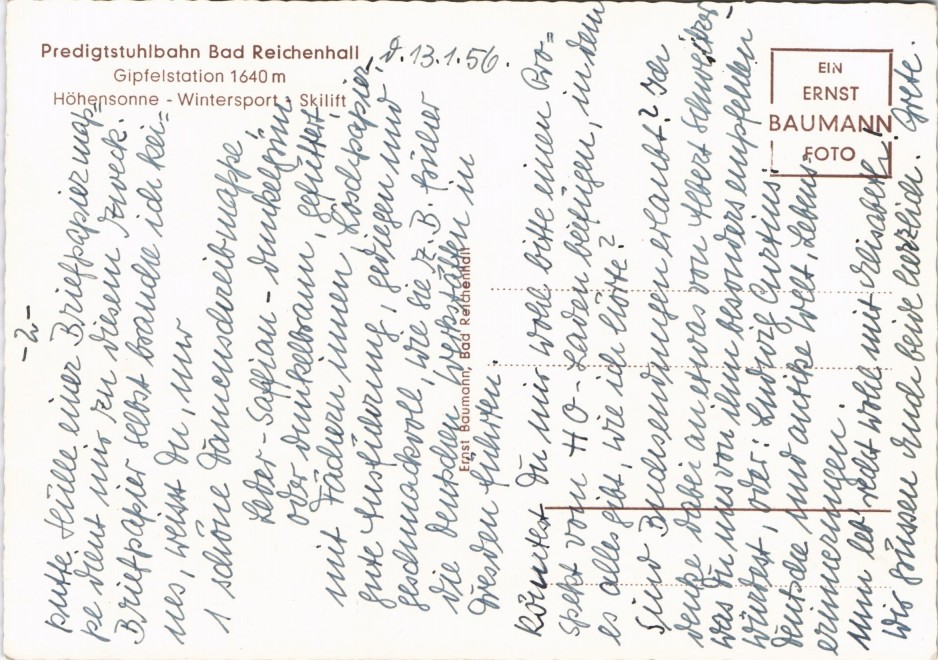 Predigtstuhlbahn Bad Reichenhall
Gipfelstation 1640 m
Höhensonne - Wintersport - Skilift
EIN
ERNST
BAUMANN
FOTO
Ernst Baumann, Bad Reichenhall
-2-
d. 13.1.56.
putte Hülle einer Briefpapiermap-
pe dient mir zu diesem Zweck.
Briefpapier selbst brauche ich kei-
nes, weisst Du, nur
1 schöne Damenschreibmappe
Leder-Saffian-dunkelgrün
oder dunkelbraun, gefüttert,
mit Fächern innen, Löschpapier,
gute Ausführung, gediegen und
geschmackvoll, wie sie z.B. früher
die Deutschen Werkstätten in
Dresden führten.
Könntest Du mir wohl bitte einen Pro-
spekt vom HO-Laden beifügen, in dem
es alles gibt, wie ich hörte?
Sind Büchersendungen erlaubt? Ich
denke dabei an etwas von Albert Schweitzer-
was Du uns von ihm besonders empfehlen
würdest, oder: Ludwig Curtius:
Deutsche und antike Welt, Lebens-
erinnerungen.
Nun leb' recht wohl mit Elisabeth!
Wir grüssen Euch beide herzlich. Grete.